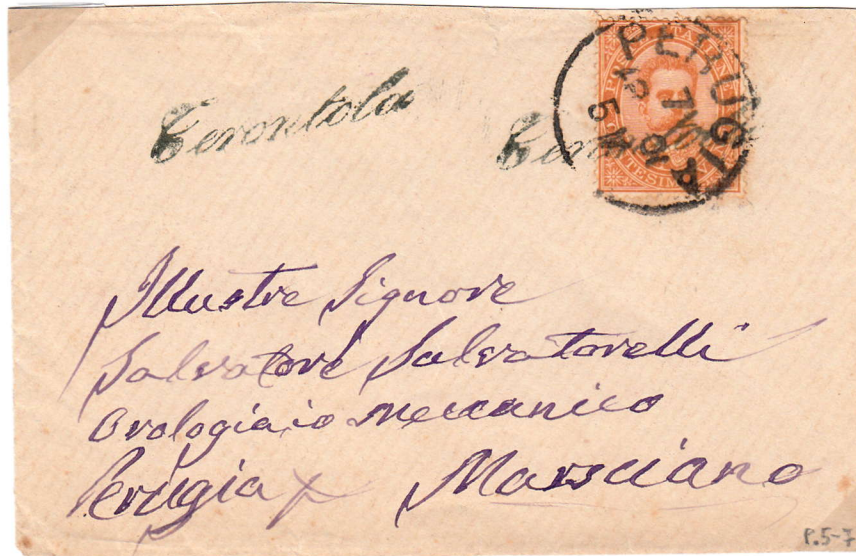 Terontola
PERUGIA
Illustre Signore
Salvatore Salvatorelli
Orologiaio meccanico
Perugia x Marsciano
P.5-7